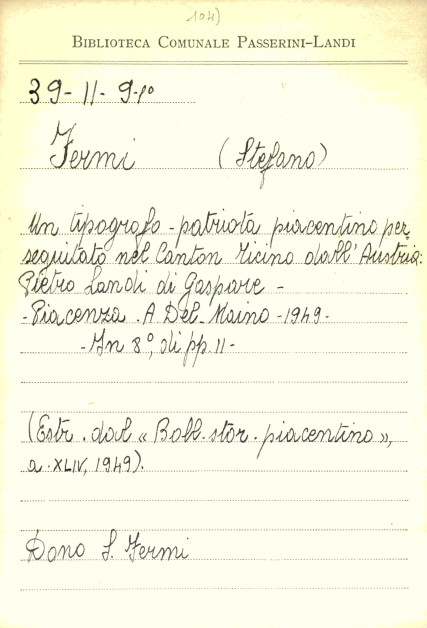 104)
BIBLIOTECA COMUNALE PASSERINI-LANDI
39-11-9-10
Fermi (Stefano)
Un tipografo-patriota piacentino per-
seguitato nel Canton Ticino dall'Austria:
Pietro Landi di Gaspare -
- Piacenza. A. Del-Maino - 1949 -
- In 8°, di pp. 11 -
(Estr. dal « Boll. stor. piacentino »,
a. XLIV, 1949).
Dono S. Fermi